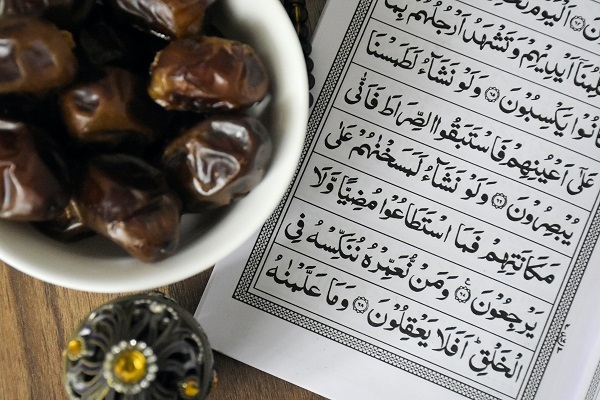 اَلْيَوْمَ
اَيْدِيْهِمْ وَتَشْهَدُ اَرْجُلُهُمْ بِمَا
يَكْسِبُوْنَ ۝ وَلَوْ نَشَآءُ لَطَمَسْنَا
عَلٰٓى اَعْيُنِهِمْ فَاسْتَبَقُوا الصِّرَاطَ فَاَنّٰى
يُبْصِرُوْنَ ۝۶۶ وَلَوْ نَشَآءُ لَمَسَخْنٰهُمْ عَلٰى
مَكَانَتِهِمْ فَمَا اسْتَطَاعُوْا مُضِيًّا وَّلَا
يَرْجِعُوْنَ ۝۶۷ وَمَنْ نُّعَمِّرْهُ نُنَكِّسْهُ فِى
الْخَلْقِؕ اَفَلَا يَعْقِلُوْنَ ۝۶۸ وَمَا عَلَّمْنٰهُ